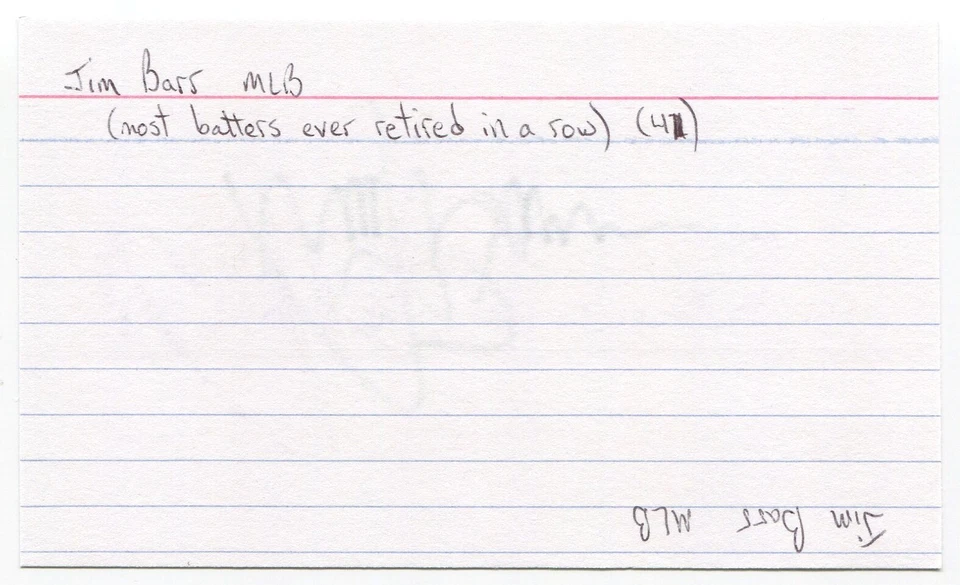 Jim Bars MLB
(most batters ever retired in a row) (41)
Jim Bars MLB